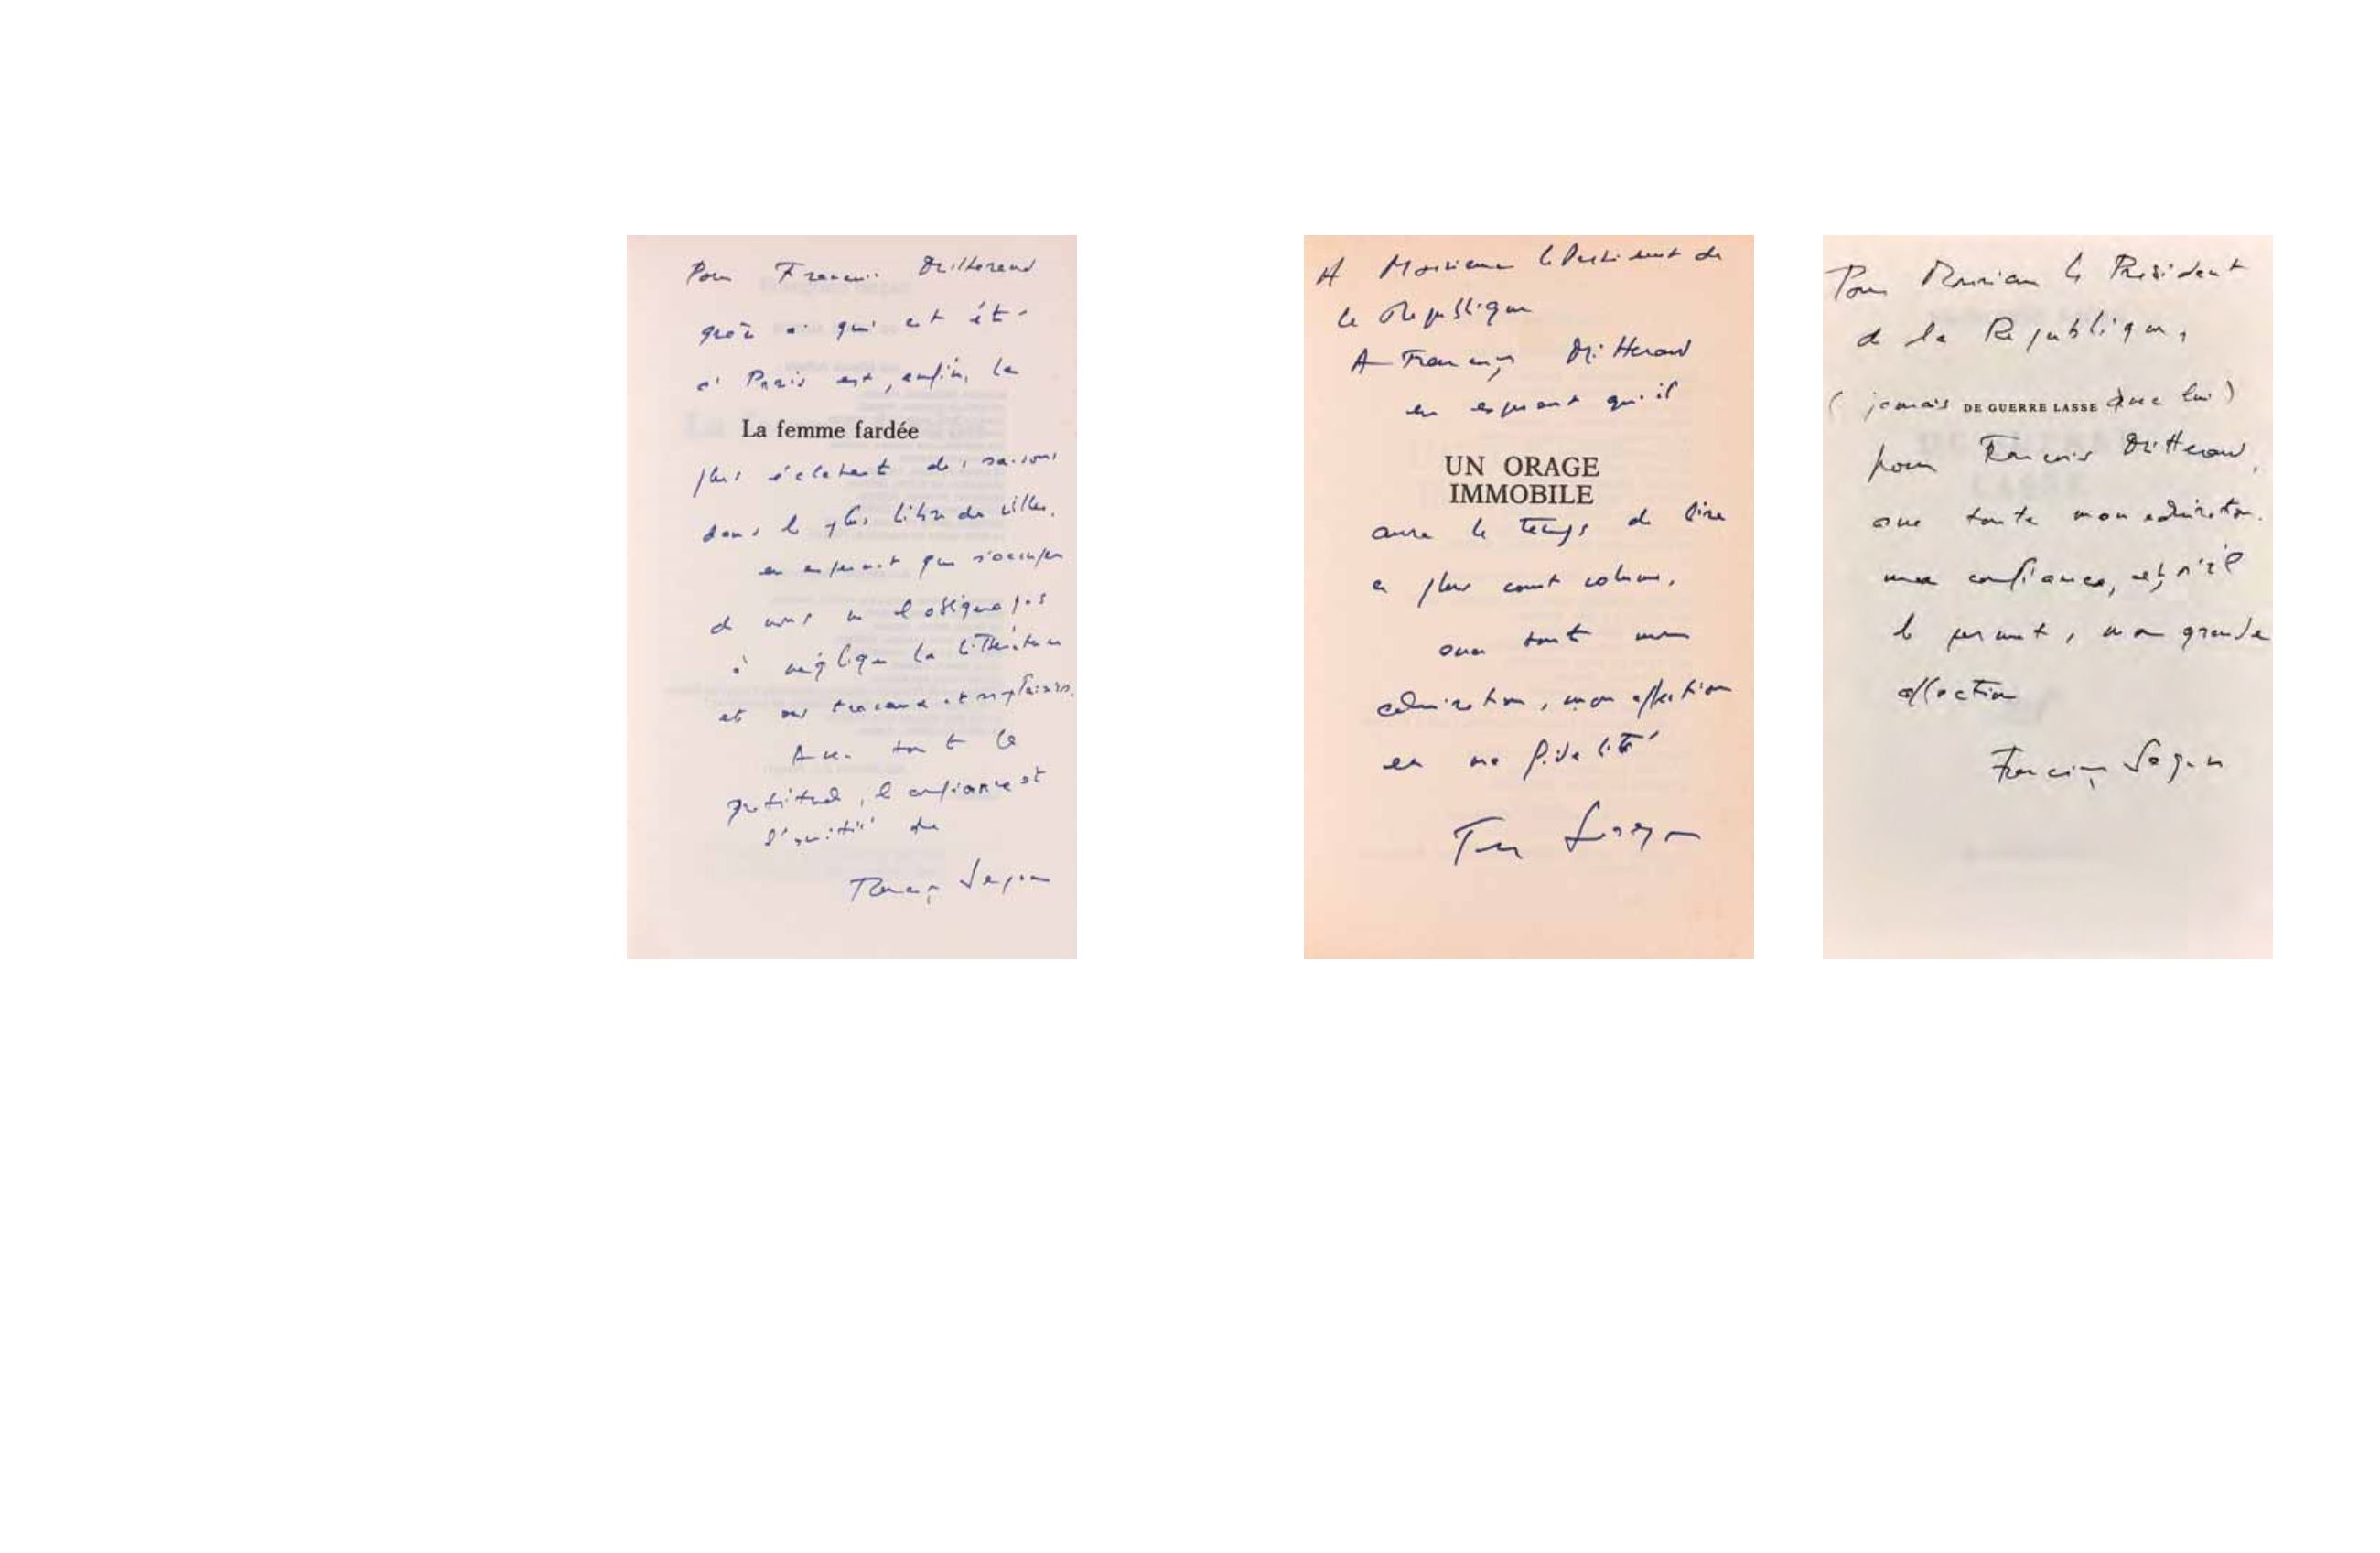 Pour François Mitterrand
grâce à qui cet été
à Paris est, enfin, la
La femme fardée
plus éclatant des saisons
dans la plus libre des villes.
en espérant que s'occuper
de nous ne l'obligera pas
à négliger la littérature
et ses travaux et ses plaisirs.
Avec toute la
gratitude, la confiance et
l'amitié de
Françoise Sagan
A Monsieur le Président de
la République
A François Mitterrand
en espérant qu'il
UN ORAGE
IMMOBILE
aura le temps de lire
ce plus court volume,
avec toute mon
admiration, mon affection
et ma fidélité
Françoise Sagan
Pour Monsieur le Président
de la République,
(jamais DE GUERRE LASSE avec lui)
pour François Mitterrand,
avec toute mon admiration,
ma confiance, et, s'il
le permet, ma grande
affection
Françoise Sagan